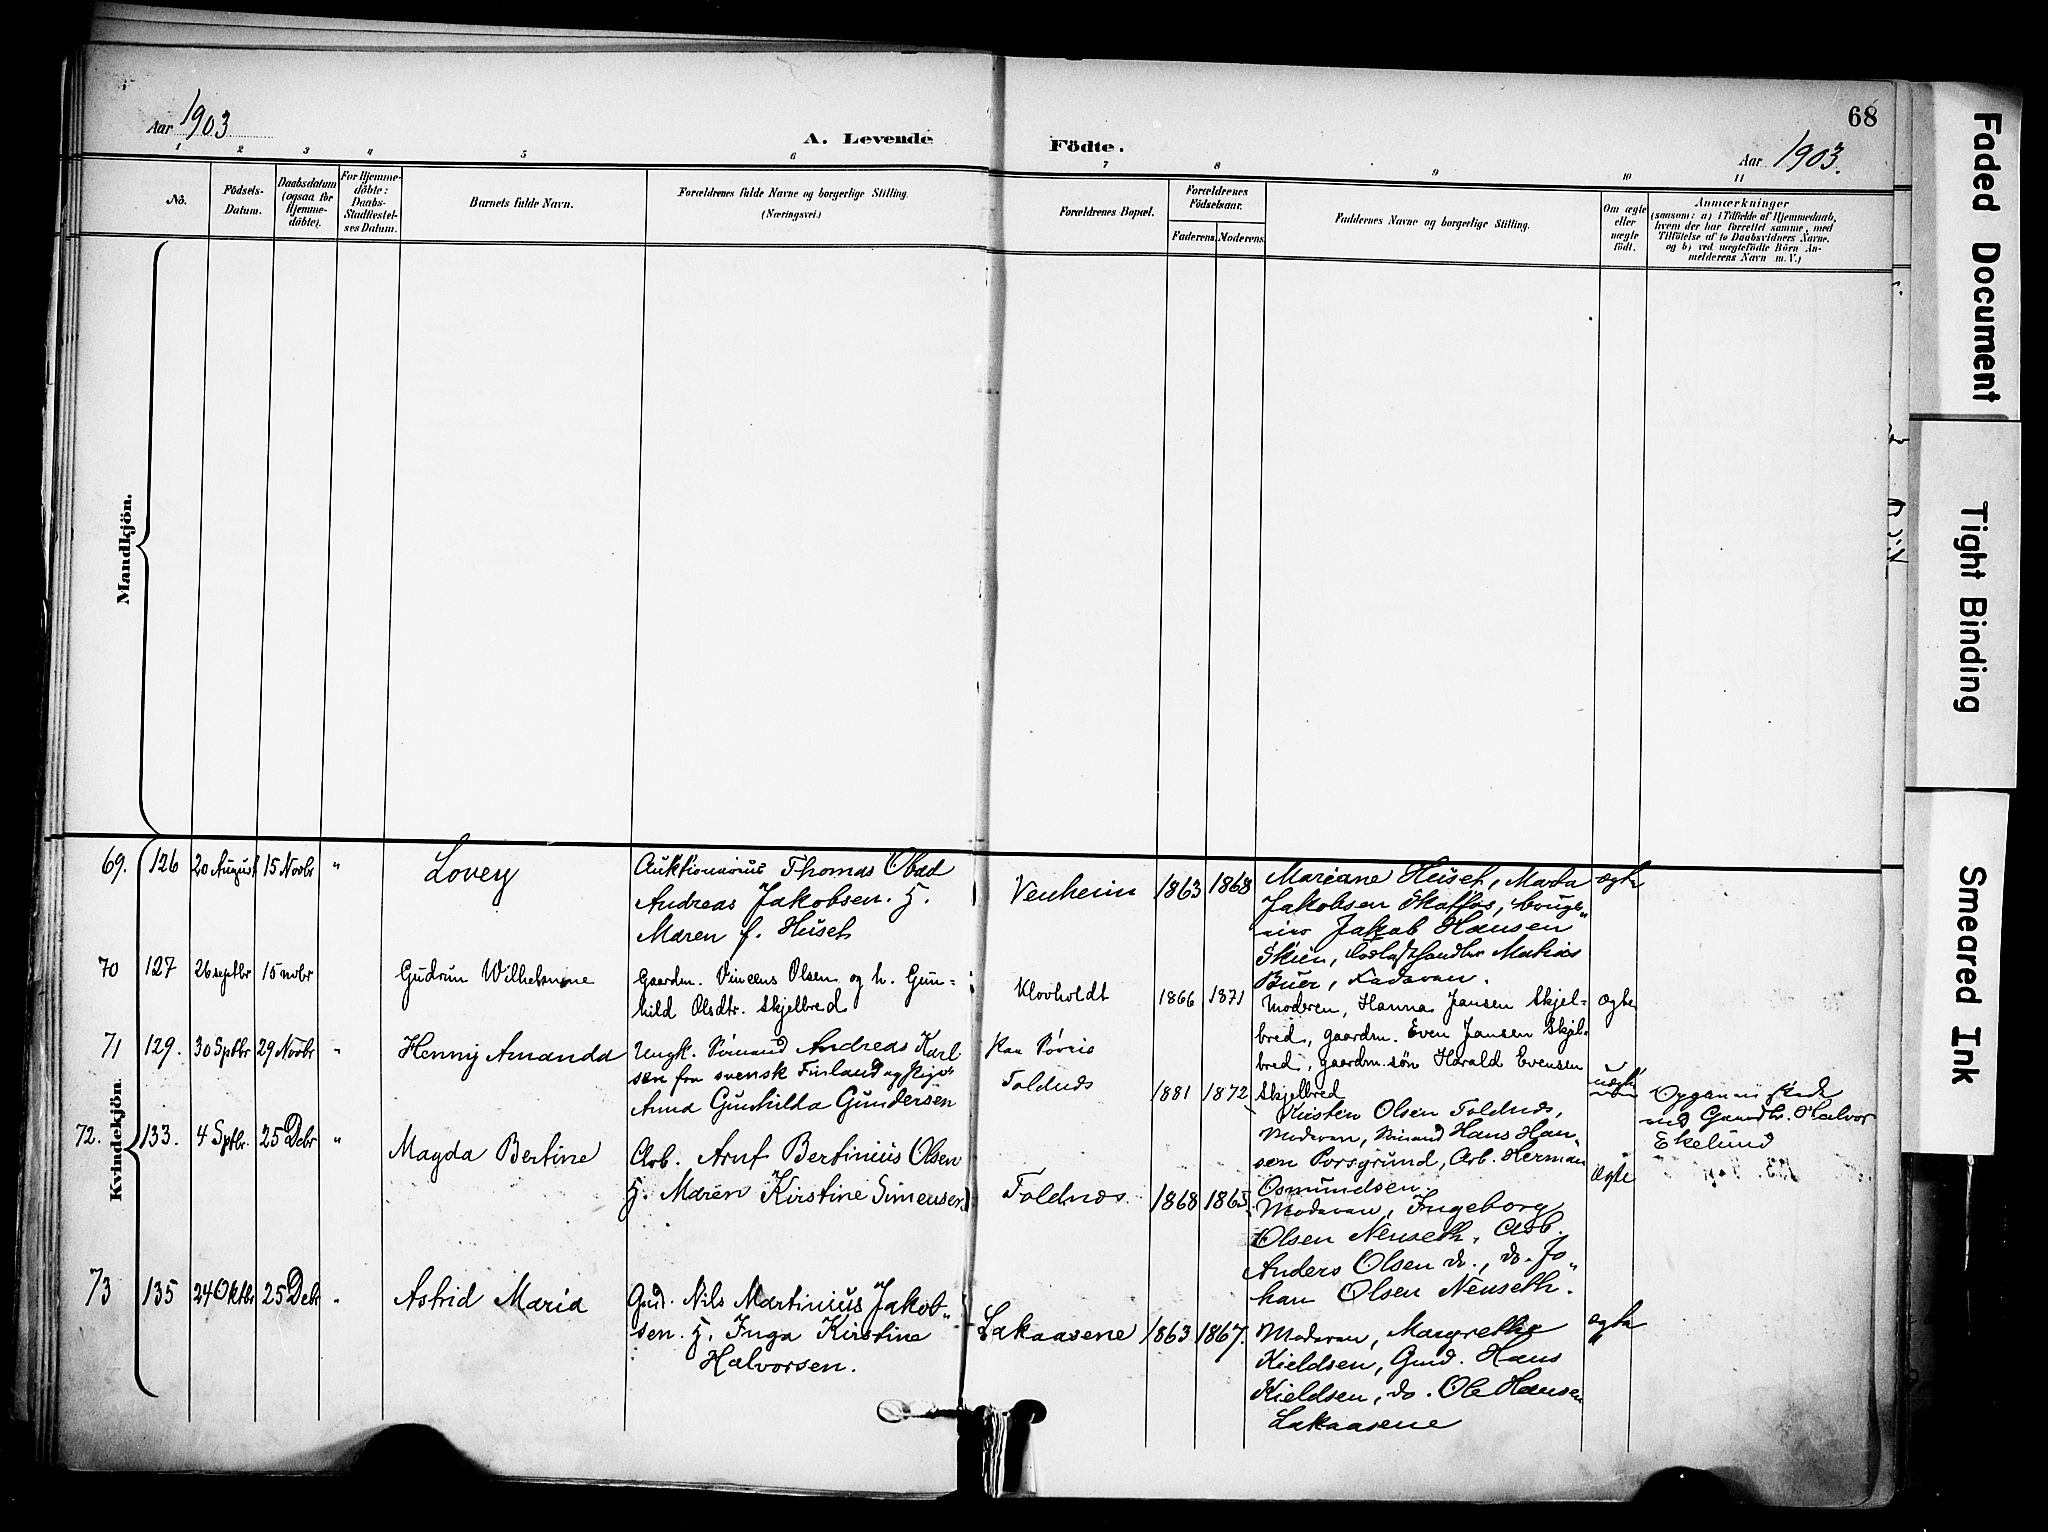 Aar 1903
A. Levende
Födte.
Aar 1903.
68
1 2 3 4 5 6 7 8 9 10 11
No.
Födsels-
Datum.
Daabsdatum
(ogsaa for
Hjemme-
döbte).
For Hjemme-
döbte:
Daabs-
Stadfæstel-
ses Datum.
Barnets fulde Navn.
Forældrenes fulde Navne og borgerlige Stilling.
(Næringsvei.)
Forældrenes Bopæl.
Forældrenes
Födselsaar.
Faderens. Moderens.
Faddernes Navne og borgerlige Stilling.
Om ægte
eller
uægte
födt.
Anmærkninger
(saasom: a) i Tilfælde af Hjemmedaab,
hvem der har forrettet samme, med
Tilföielse af to Daabsvidners Navne.
og b) ved uægtefödte Börn An-
melderens Navn m. V.)
Mandkjön.
Kvindekjön.
69. 126 20 August 15 Novbr "
Lovey
Auktionarius Thomas Obad
Andreas Jakobsen. H.
Maren f. Huset
Venheim
1863 1868
Mariane Huset, Marta
Jakobsen Skaffos,
Jakob Hansen
Skien, Mathias
Buer,
Ægte
70 127 26 septbr 15 novbr
Gudrun Wilhelmine
Gaardm. Vincens Olsen og h. Gun-
hild Olsdtr. Skjelbred
Klovholdt
1866 1871
Moderen, Hanna Jansen Skjel-
bred, gaardm. Even Jansen Skjel-
bred, gaardm. sön Harald Evensen
Skjelbred
Ægte
71 129. 30 Sptbr 29 Novbr "
Henny Amanda
Ungk. Sömand Andreas Karl
sen fra svensk Finland og Pige
Anna Gunhilda Gundersen
Toldnæs
1881 1872
Kirsten Olsen Toldnæs,
Modoren, Sömand Hans Han-
sen Porsgrund, Arb. Herman
Osmundsen
uægte
Halvor
Ekelund
72. 133. 4 Sptbr. 25 Debr "
Magda Bertine
Arb. Arnt Bertinius Olsen
H. Maren Kirstine Simensen
Toldnæs
1868 1865
Moderen, Ingeborg
Olsen Nenseth, Arb.
Anders Olsen do., do. Jo
han Olsen Nenseth.
Ægte
73 135 24 Oktbr 25 Debr "
Astrid Maria
Gmd. Nils Martinius Jakob-
sen. H. Inga Kirstine
Halvorsen.
Lakaasene
1863 1867.
Moderen, Margrethe
Kieldsen, Gmd. Hans
Kieldsen, do. Ole Hansen
Lakaasene
ægte
Faded Document
Tight Binding
Smeared Ink